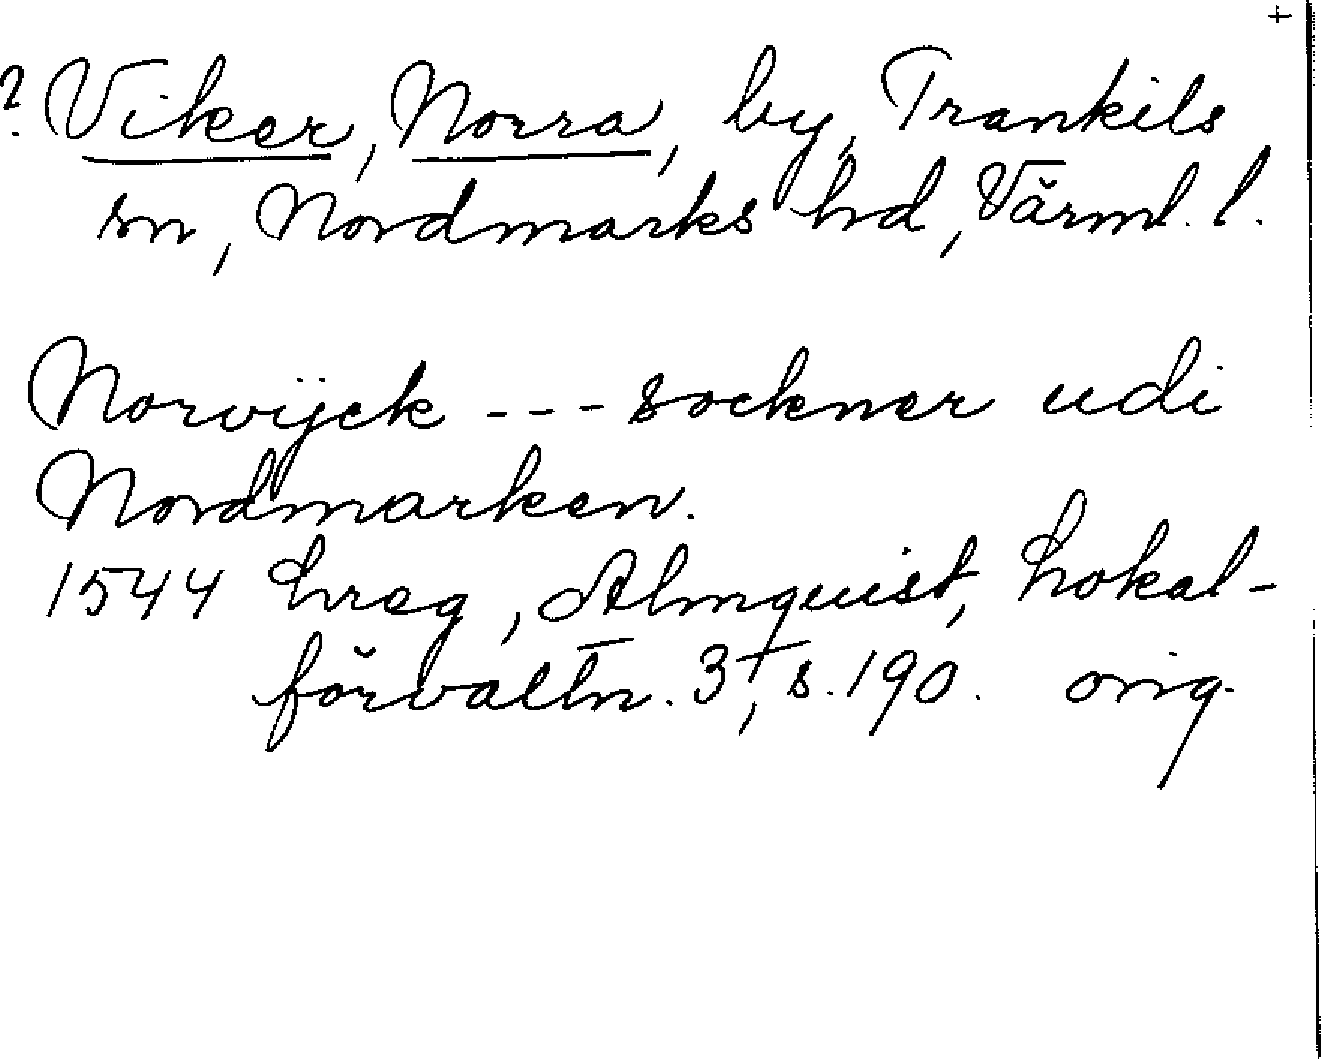 +
? Viker, Norra, by, Trankils
sn, Nordmarks hd, Värml. l.
Norvijck --- sockner udi
Nordmarken.
1544 hreg, Almquist, Lokal-
förvaltn. 3, s. 190. orig.